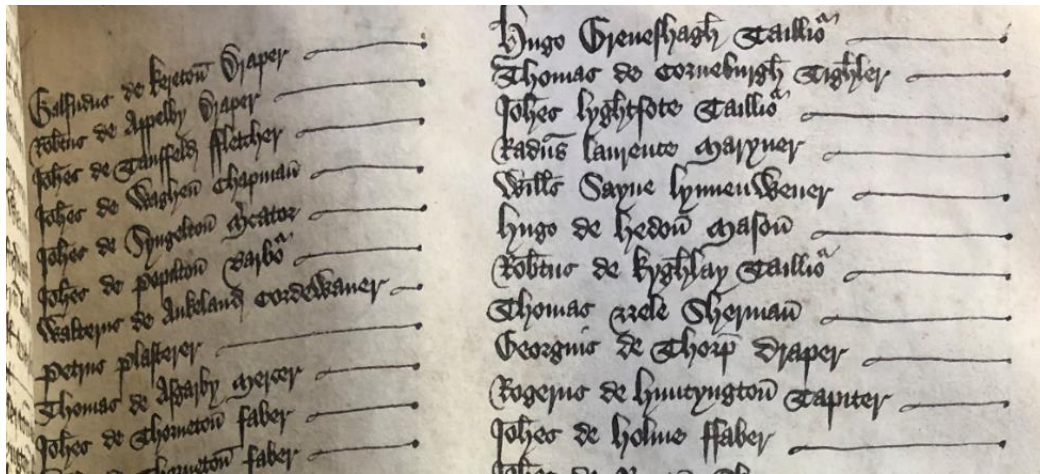 Galfridus de Kereton̄ Draper
Rob̄tus de Appelby Draper
Joh̄es de Tanffeld ffletcher
Joh̄es de Waghen̄ Chapman̄
Joh̄es de Syngelton̄ M̄cator
Joh̄es de Popilton̄ Barbō
Walterus de Aukeland Cordewaner
Petrus Plasterer
Thomas de Asgarby Mercer
Joh̄es de Thorneton̄ Faber
de Thorneton̄ Faber
Hugo Greneshagh̄ Tailliō
Thomas de Corneburgh̄ Tigh̄ler
Joh̄es Lygh̄tfote Tailliō
Radūs Laurence Maryner
Will̄s Sayne Lynnenwener
Hugo de Hedon̄ Mason̄
Rob̄tus de Kygh̄lay Tailliō
Thomas Sherman̄
Georgius de Thorp̄ Draper
Rogerus de Huntyngton̄ Tapiter
Joh̄es de Holme ffaber
Joh̄es de